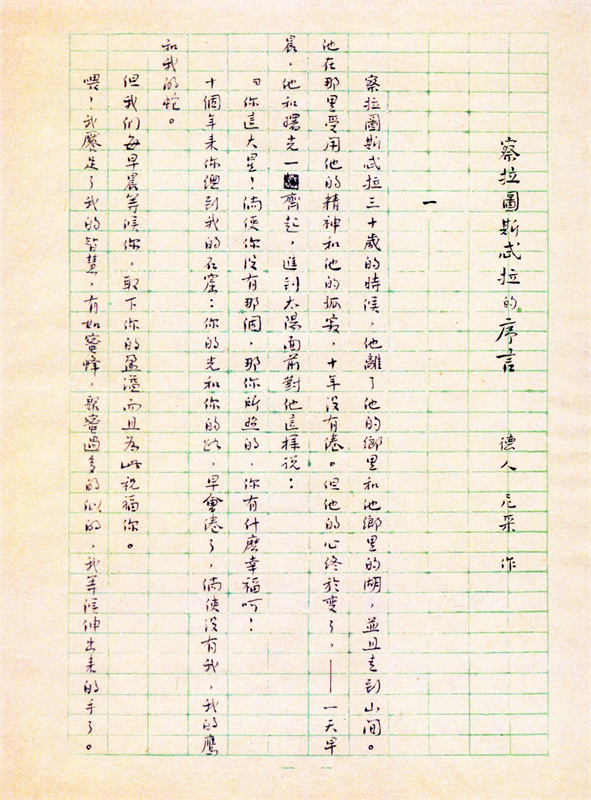 察拉圖斯忒拉的序言　德人　尼采　作
一
察拉圖斯忒拉三十歲的時候，他離了他的鄉里和他鄉里的湖，並且走到山間。
他在那里受用他的精神和他的孤寂，十年沒有倦。但他的心終於變了，——一天早
晨，他和曙光一齊起，進到太陽面前對他這樣說：
『你這大星！倘使你沒有那個，那你所照的，你有什麽幸福呵！
十個年來你總到我的石窟：你的光和你的路，早會倦了，倘使沒有我，我的鷹
和我的蛇。
但我们每早晨等候你，取下你的盈溢而且為此祝福你。
喂！我饜足了我的智慧，有如蜜蜂，聚蜜過多的似的，我等候伸出来的手了。